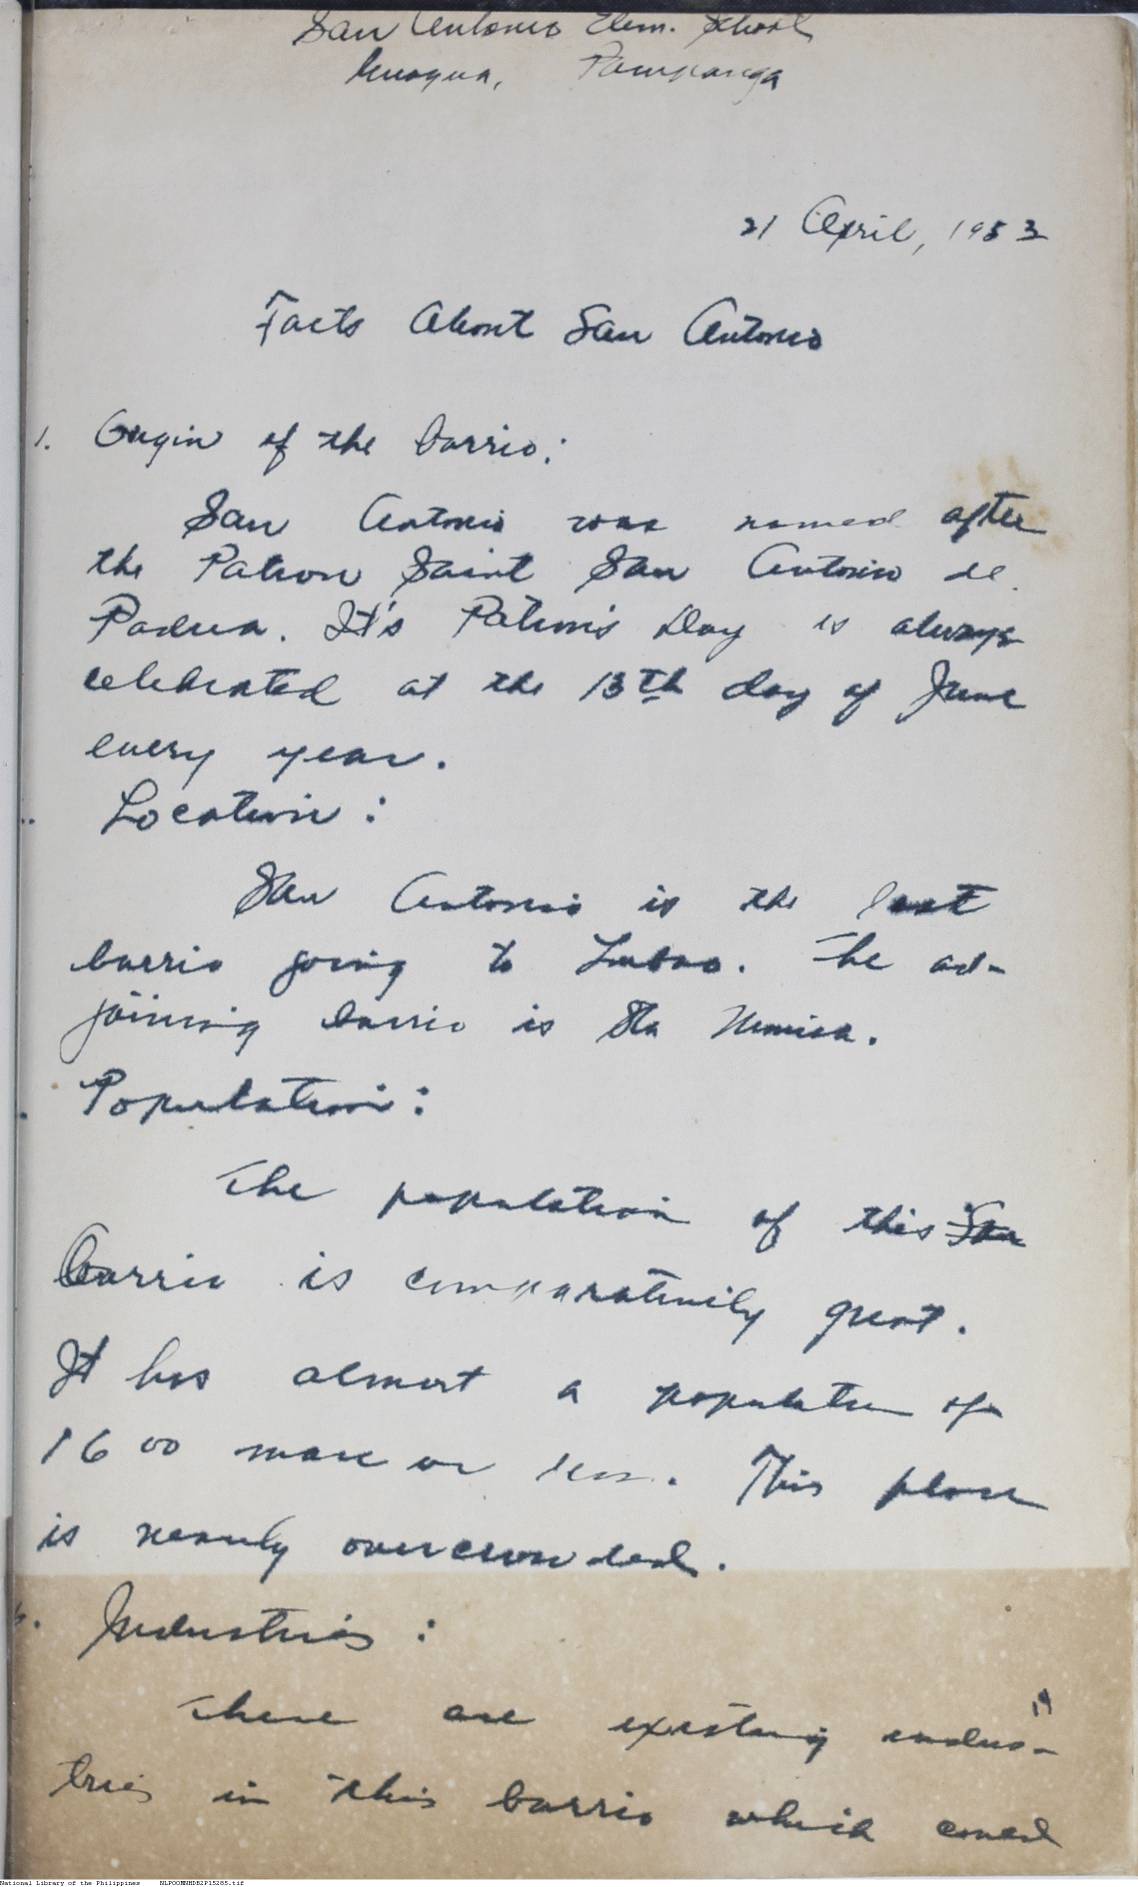 San Antonio Elem. School
Guagua, Pampanga
21 April, 1953
Facts About San Antonio
1. Origin of the barrio:
San Antonio was named after
the Patron Saint San Antonio de
Padua. It's Patron's Day is always
celebrated at the 13th day of June
every year.
Location:
San Antonio is the last
barrio going to Lubao. The ad-
joining barrio is Sta Monica.
Population:
The population of this San
barrio is comparatively great.
It has almost a population of
1600 more or less. This place
is nearly overcrowded.
Industries:
19
There are existing indus-
tries in this barrio which could
National Library of the Philippines NLPOOMNHDB2P15285.tif